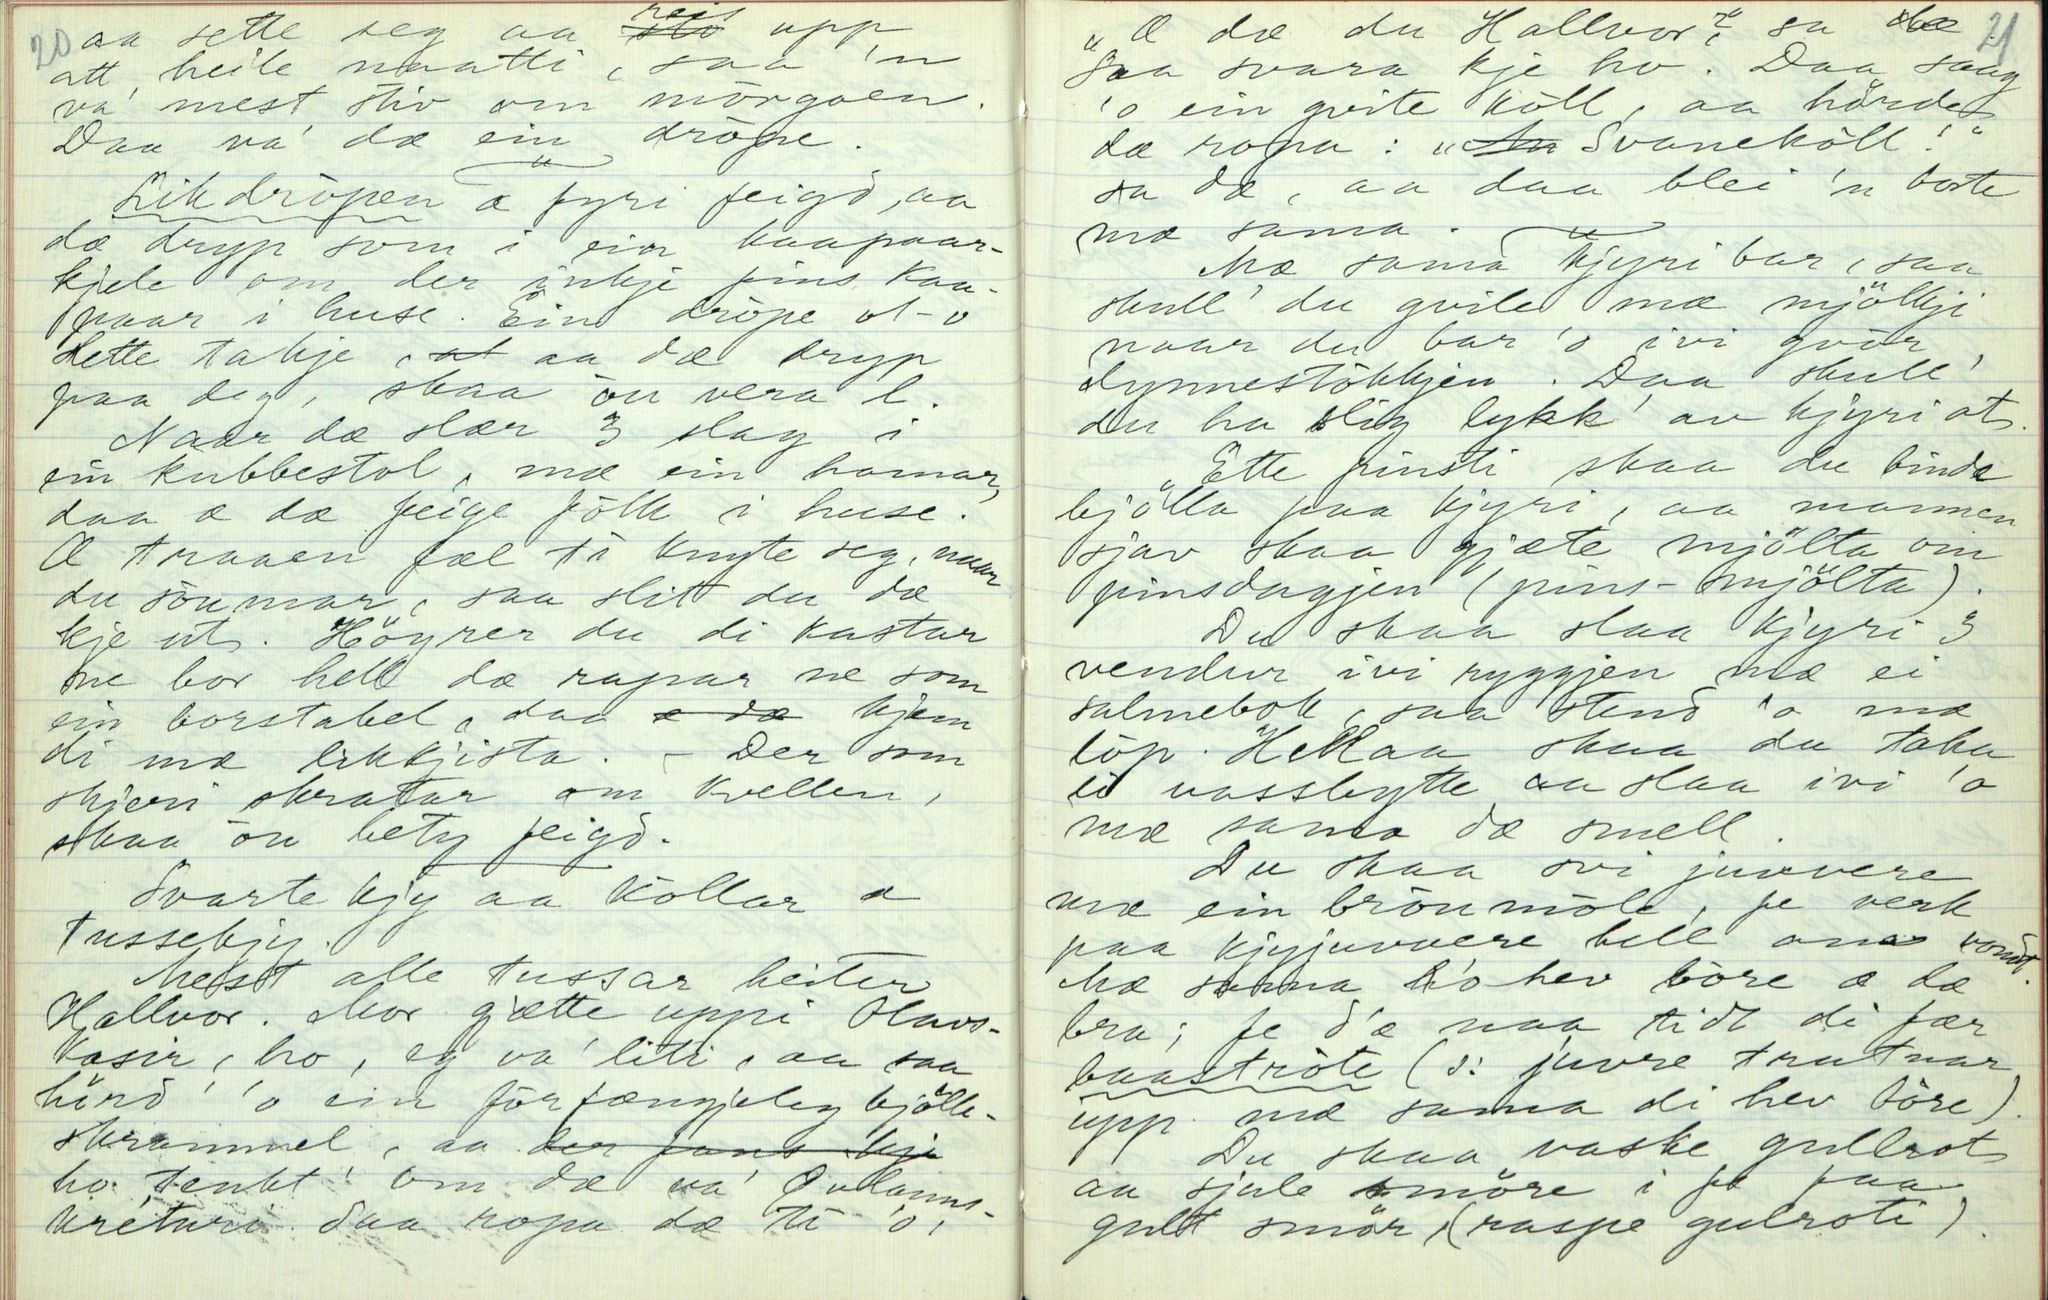 20
aa sette seg aa sto reis upp
att heile naatti, saa 'n
va' mest stiv om mörgaen.
Daa va' dæ ein dröpe.
Likdröpen æ fyri feigd, aa
dæ dryp som i ein kaapaar-
kjele om der inkje fins kaa-
paar i huse. Ein dröpe ot-o
dette takje, at aa dæ dryp
paa deg, skaa òu vera l.
Naar dæ slær 3 slag i
ein kubbestol, mæ ein hamar,
daa æ dæ feige folk i huse.
Æ traaen fæl ti knyte seg, naar
du söumar, saa slit du dæ
kje ut. Höyrer du di kastar
ne bor hell dæ rapar ne som
ein borstabel, daa æ dæ kjem
di mæ likkjista. - Der som
skjeri skratar om kvellen,
skaa òu bety feigd.
Svarte kjy aa kollar æ
tussekjy.
Mest alle tussar heiter
Hallvor. Mor gjætte uppi Olavs-
kasin, ho, eg va' liti, aa saa
hörd' 'o ein förfængjeleg bjölle-
skrammel, aa der fans kje
ho tenkt' om dæ va' Qvlanns-
kréturi. Saa ropa dæ ti 'o,
21
„Æ dæ du Hallvor?" sa dæ.
Saa svara kje ho. Daa saag
'o ein qvite köll, aa hörde
dæ ropa: „Aa Svaneköll!"
sa dæ, aa daa blei 'n borte
mæ sama.
Mæ sama kjyri bar, saa
skull' du qvile mæ mjölkji
naar du bar 'o ivi qvör
dynnestökkjen. Daa skull'
du ha slig lykk' av kjyri at.
Ette pinsti skaa du binde
bjölla paa kjyri, aa mannen
sjav skaa gjæte mjölta om
pinsdagjen (pins-smjölta).
Du skaa slaa kjyri 3
vendur ivi ryggjen mæ ei
salmebok, saa stend 'o mæ
löp. Hellaa skaa du taka
ei vassbytte aa slaa ivi 'o
mæ sama dæ smell.
Du skaa svi juvvere
mæ ein bröunmöle, fe verk
paa kjyjuvvere hell anna vondt.
Mæ sama h'o hev böre æ dæ
bra; fe d'æ naa tidt di fær
baaströte (ɔ: juvre trutnar
upp mæ sama di hev böre).
Du skaa vaske gullrot
aa sjule smöre i fe faa
gult smör, (raspe gulroti).